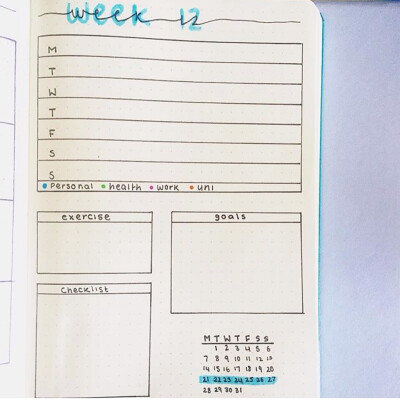 week 12
M
T
W
T
F
S
S
personal health work uni
exercise
goals
checklist
M T W T F S S
1 2 3 4 5 6
7 8 9 10 11 12 13
14 15 16 17 18 19 20
21 22 23 24 25 26 27
28 29 30 31